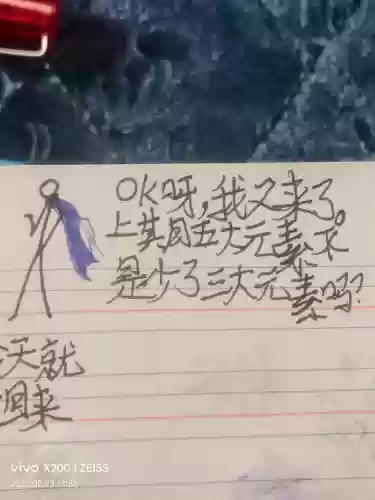 OK呀,我又来了。
上其月五大元素不
是少了三大元素吗?
天就
回来
vivo X200 | ZEISS